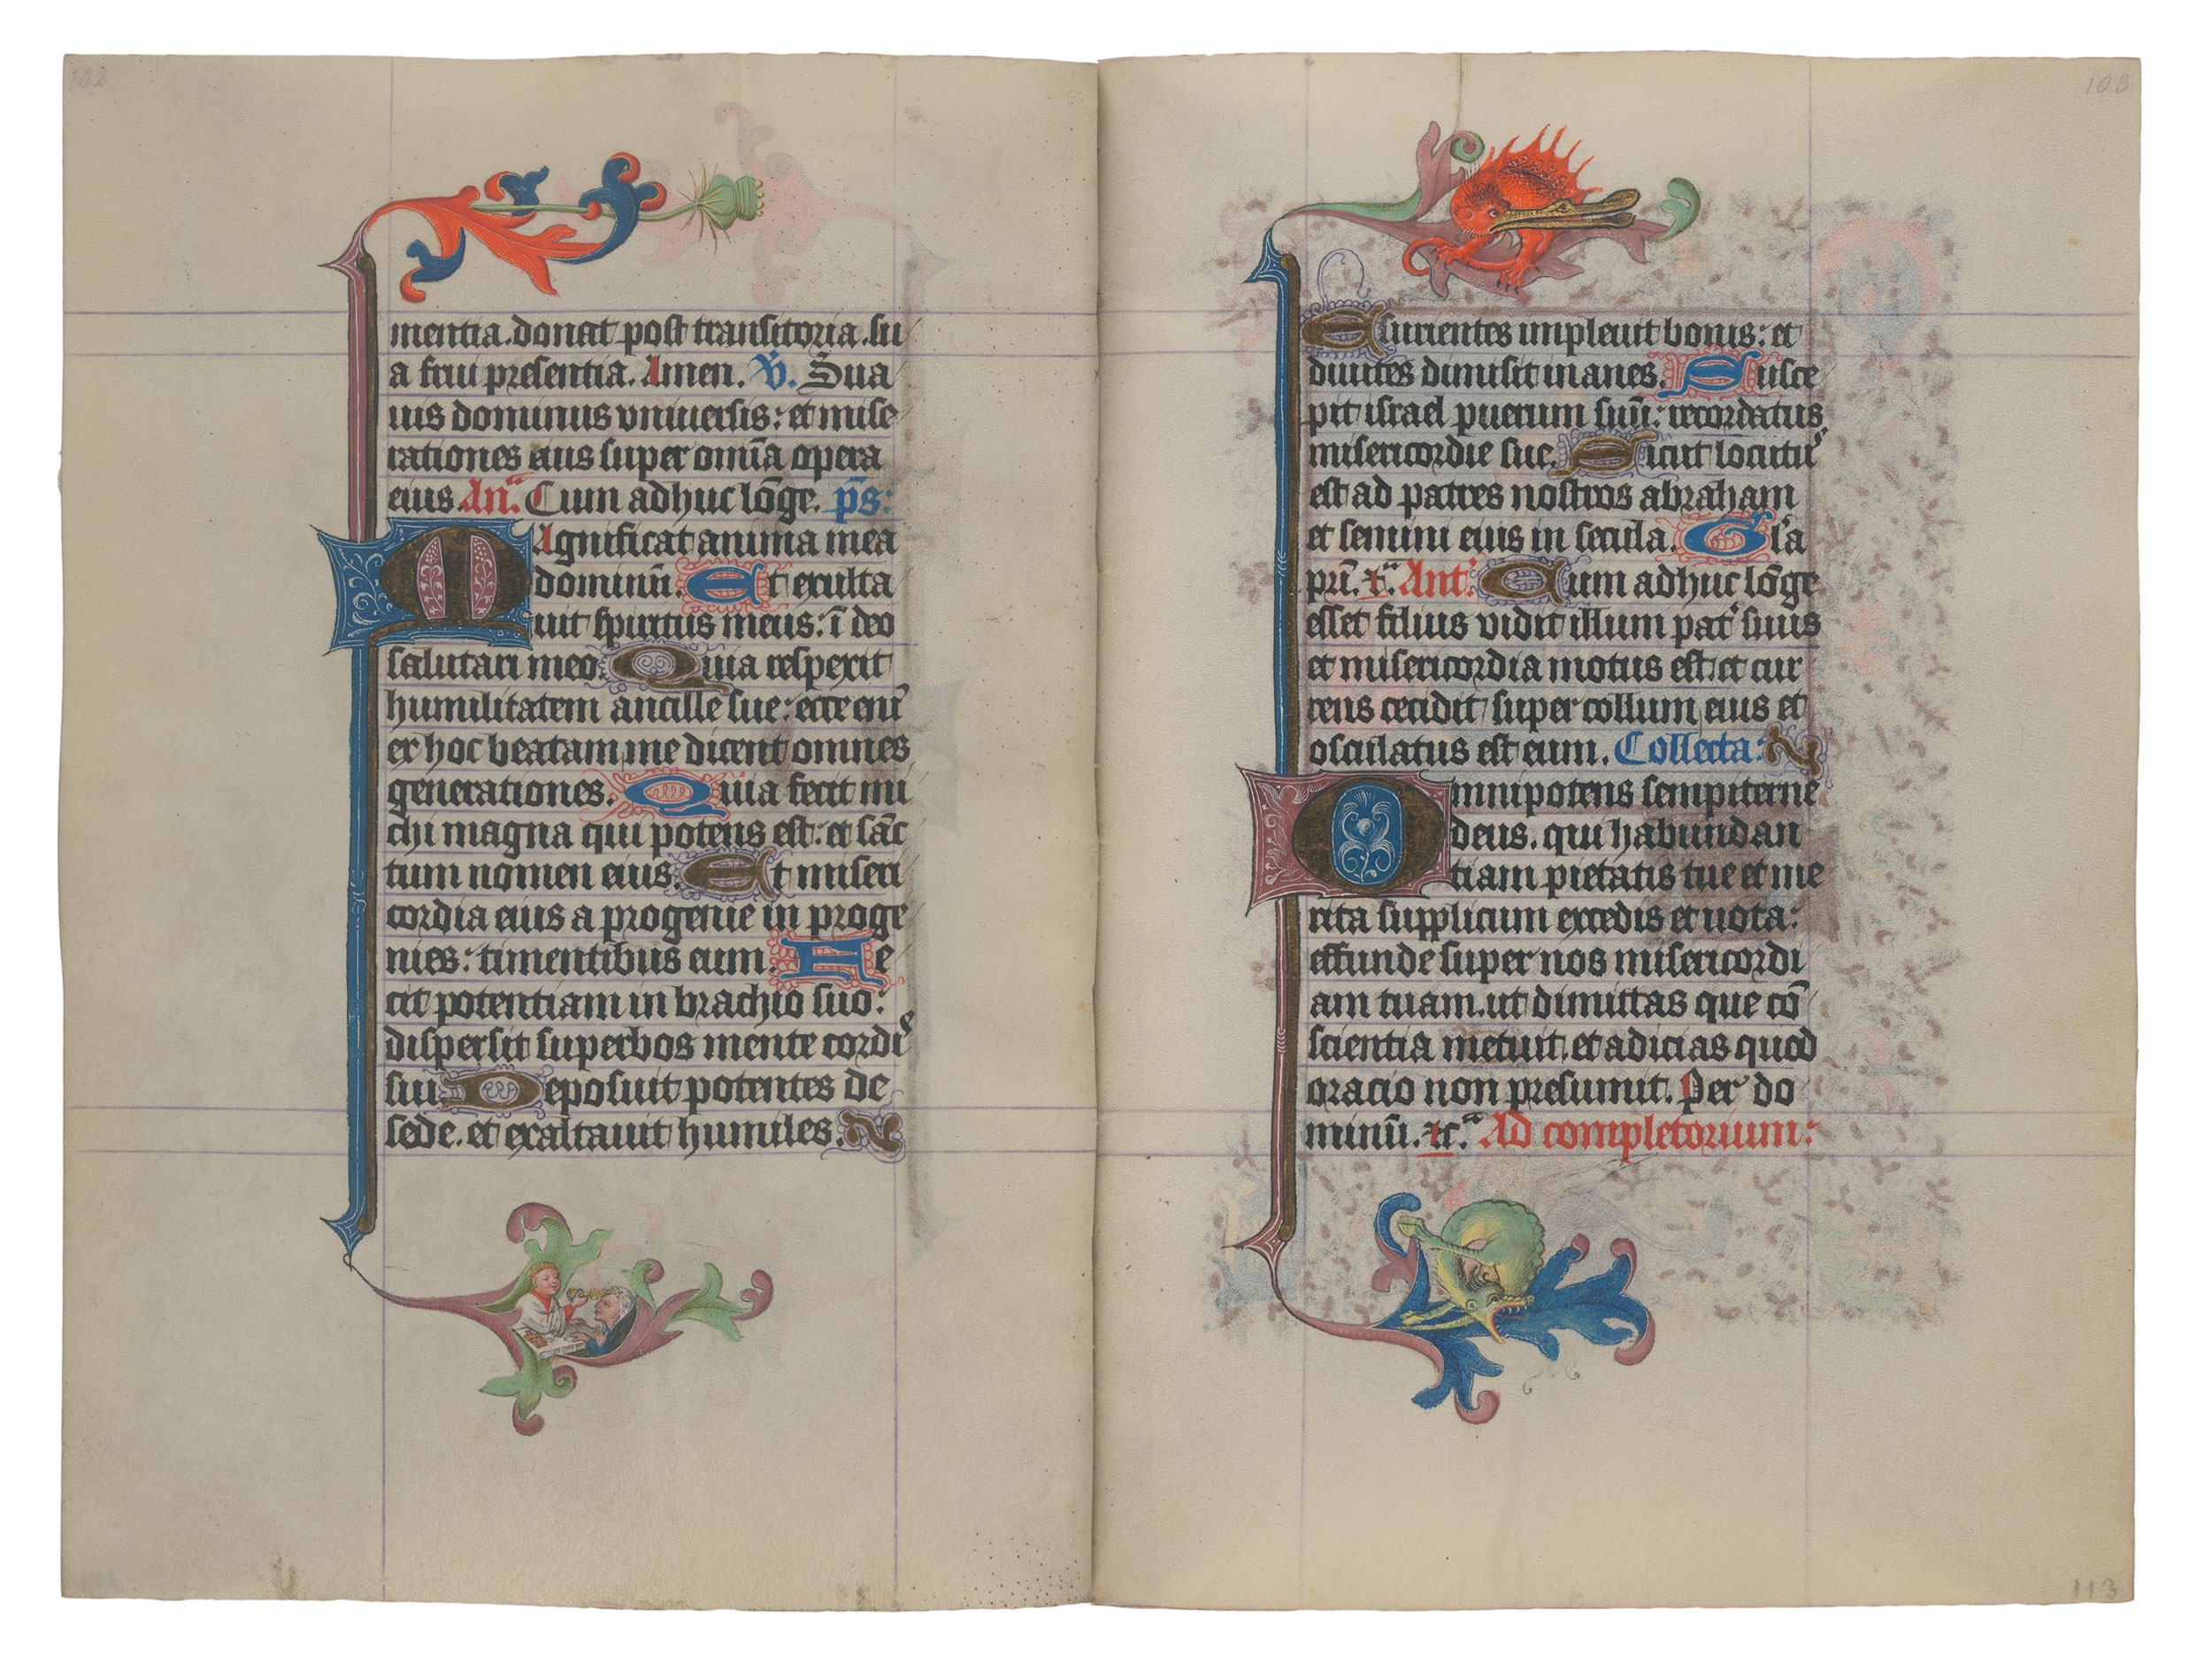 102
mentia. donat post transitoria. su
a frui presentia. Amen. V. Sua
uis dominus vniuersis: et mise
rationes eius super omīa opera
eius. Anª. Cum adhuc lōge. p̄s:
Magnificat anima mea
dominū. Et exulta
uit spiritus meus: ī deo
salutari meo. Quia respexit
humilitatem ancille sue: ecce enī
ex hoc beatam me dicent omnes
generationes. Quia fecit mi
chi magna qui potens est: et sāc
tum nomen eius. Et miseri
cordia eius a progenie in proge
nies: timentibus eum. Fe
cit potentiam in brachio suo:
dispersit superbos mente cordis
sui. Deposuit potentes de
sede. et exaltauit humiles.
103
Esurientes impleuit bonis: et
diuites dimisit inanes. Susce
pit israel puerum suū: recordatus
misericordie sue. Sicut locutus
est ad patres nostros abraham
et semini eius in secula. Gl'a
pri. ⁊cª. Ant'. Cum adhuc lōge
esset filius vidit illum pat' suus
et misericordia motus est: et cur
rens cecidit super collum eius et
osculatus est eum. Collecta:
Omnipotens sempiterne
deus. qui habundan
tiam pietatis tue et me
rita supplicum excedis et uota:
effunde super nos misericordi
am tuam. ut dimittas que cō
scientia metuit. et adicias quod
oracio non presumit. Per do
minū. ⁊cª. Ad completorium:
113